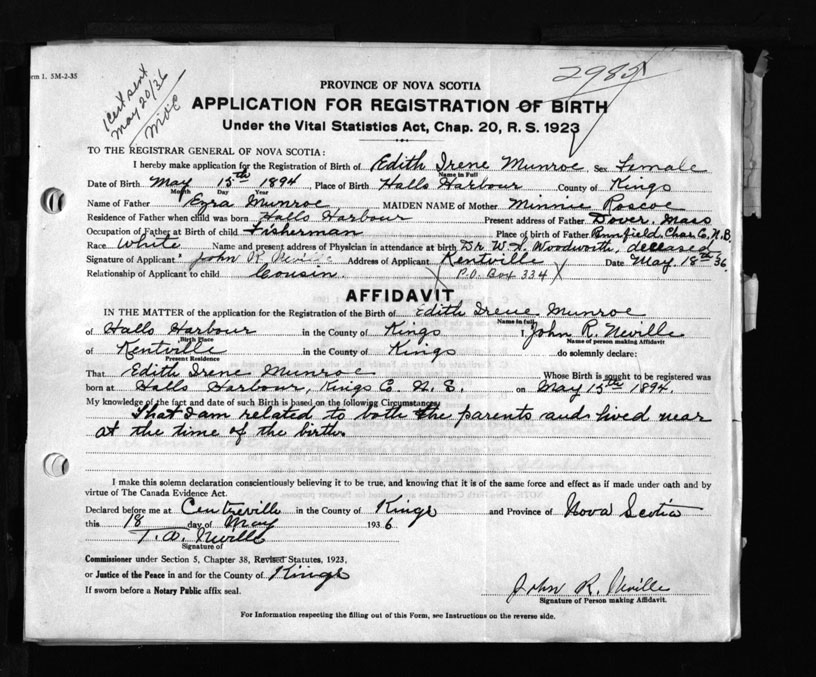 orm 1. 5M-2-35
1 cert sent
May 20/36
2985
PROVINCE OF NOVA SCOTIA
APPLICATION FOR REGISTRATION OF BIRTH
Under the Vital Statistics Act, Chap. 20, R. S. 1923
TO THE REGISTRAR GENERAL OF NOVA SCOTIA:
I hereby make application for the Registration of Birth of Edith Irene Munroe Sex Female
Name in Full
Date of Birth May 15th 1894, Place of Birth Halls Harbour County of Kings
Month Day Year
Name of Father Ezra Munroe MAIDEN NAME of Mother Minnie Roscoe
Residence of Father when child was born Halls Harbour Present address of Father Dover, Mass
Occupation of Father at Birth of child Fisherman Place of birth of Father Char. Co. N.B.
Race White Name and present address of Physician in attendance at birth Dr. W. Woodworth, deceased
Signature of Applicant John R. Neville Address of Applicant Kentville Date May. 18th 36.
Relationship of Applicant to child Cousin. P.O. Box 334
AFFIDAVIT
IN THE MATTER of the application for the Registration of the Birth of Edith Irene Munroe
Name in full
of Halls Harbour in the County of Kings I, John R. Neville
Birth Place Name of person making Affidavit
of Kentville in the County of Kings do solemnly declare:
Present Residence
That Edith Irene Munroe Whose Birth is sought to be registered was
born at Halls Harbour, Kings Co. N. S. on May 15th 1894.
My knowledge of the fact and date of such Birth is based on the following Circumstances:
That I am related to both the parents and lived near
at the time of the birth.
I make this solemn declaration conscientiously believing it to be true, and knowing that it is of the same force and effect as if made under oath and by
virtue of The Canada Evidence Act.
Declared before me at Centreville in the County of Kings and Province of Nova Scotia
this 18 day of May 1936
T. A. Neville
Signature of
Commissioner under Section 5, Chapter 38, Revised Statutes, 1923,
or Justice of the Peace in and for the County of Kings
If sworn before a Notary Public affix seal.
John R. Neville
Signature of Person making Affidavit.
For Information respecting the filling out of this Form, see Instructions on the reverse side.